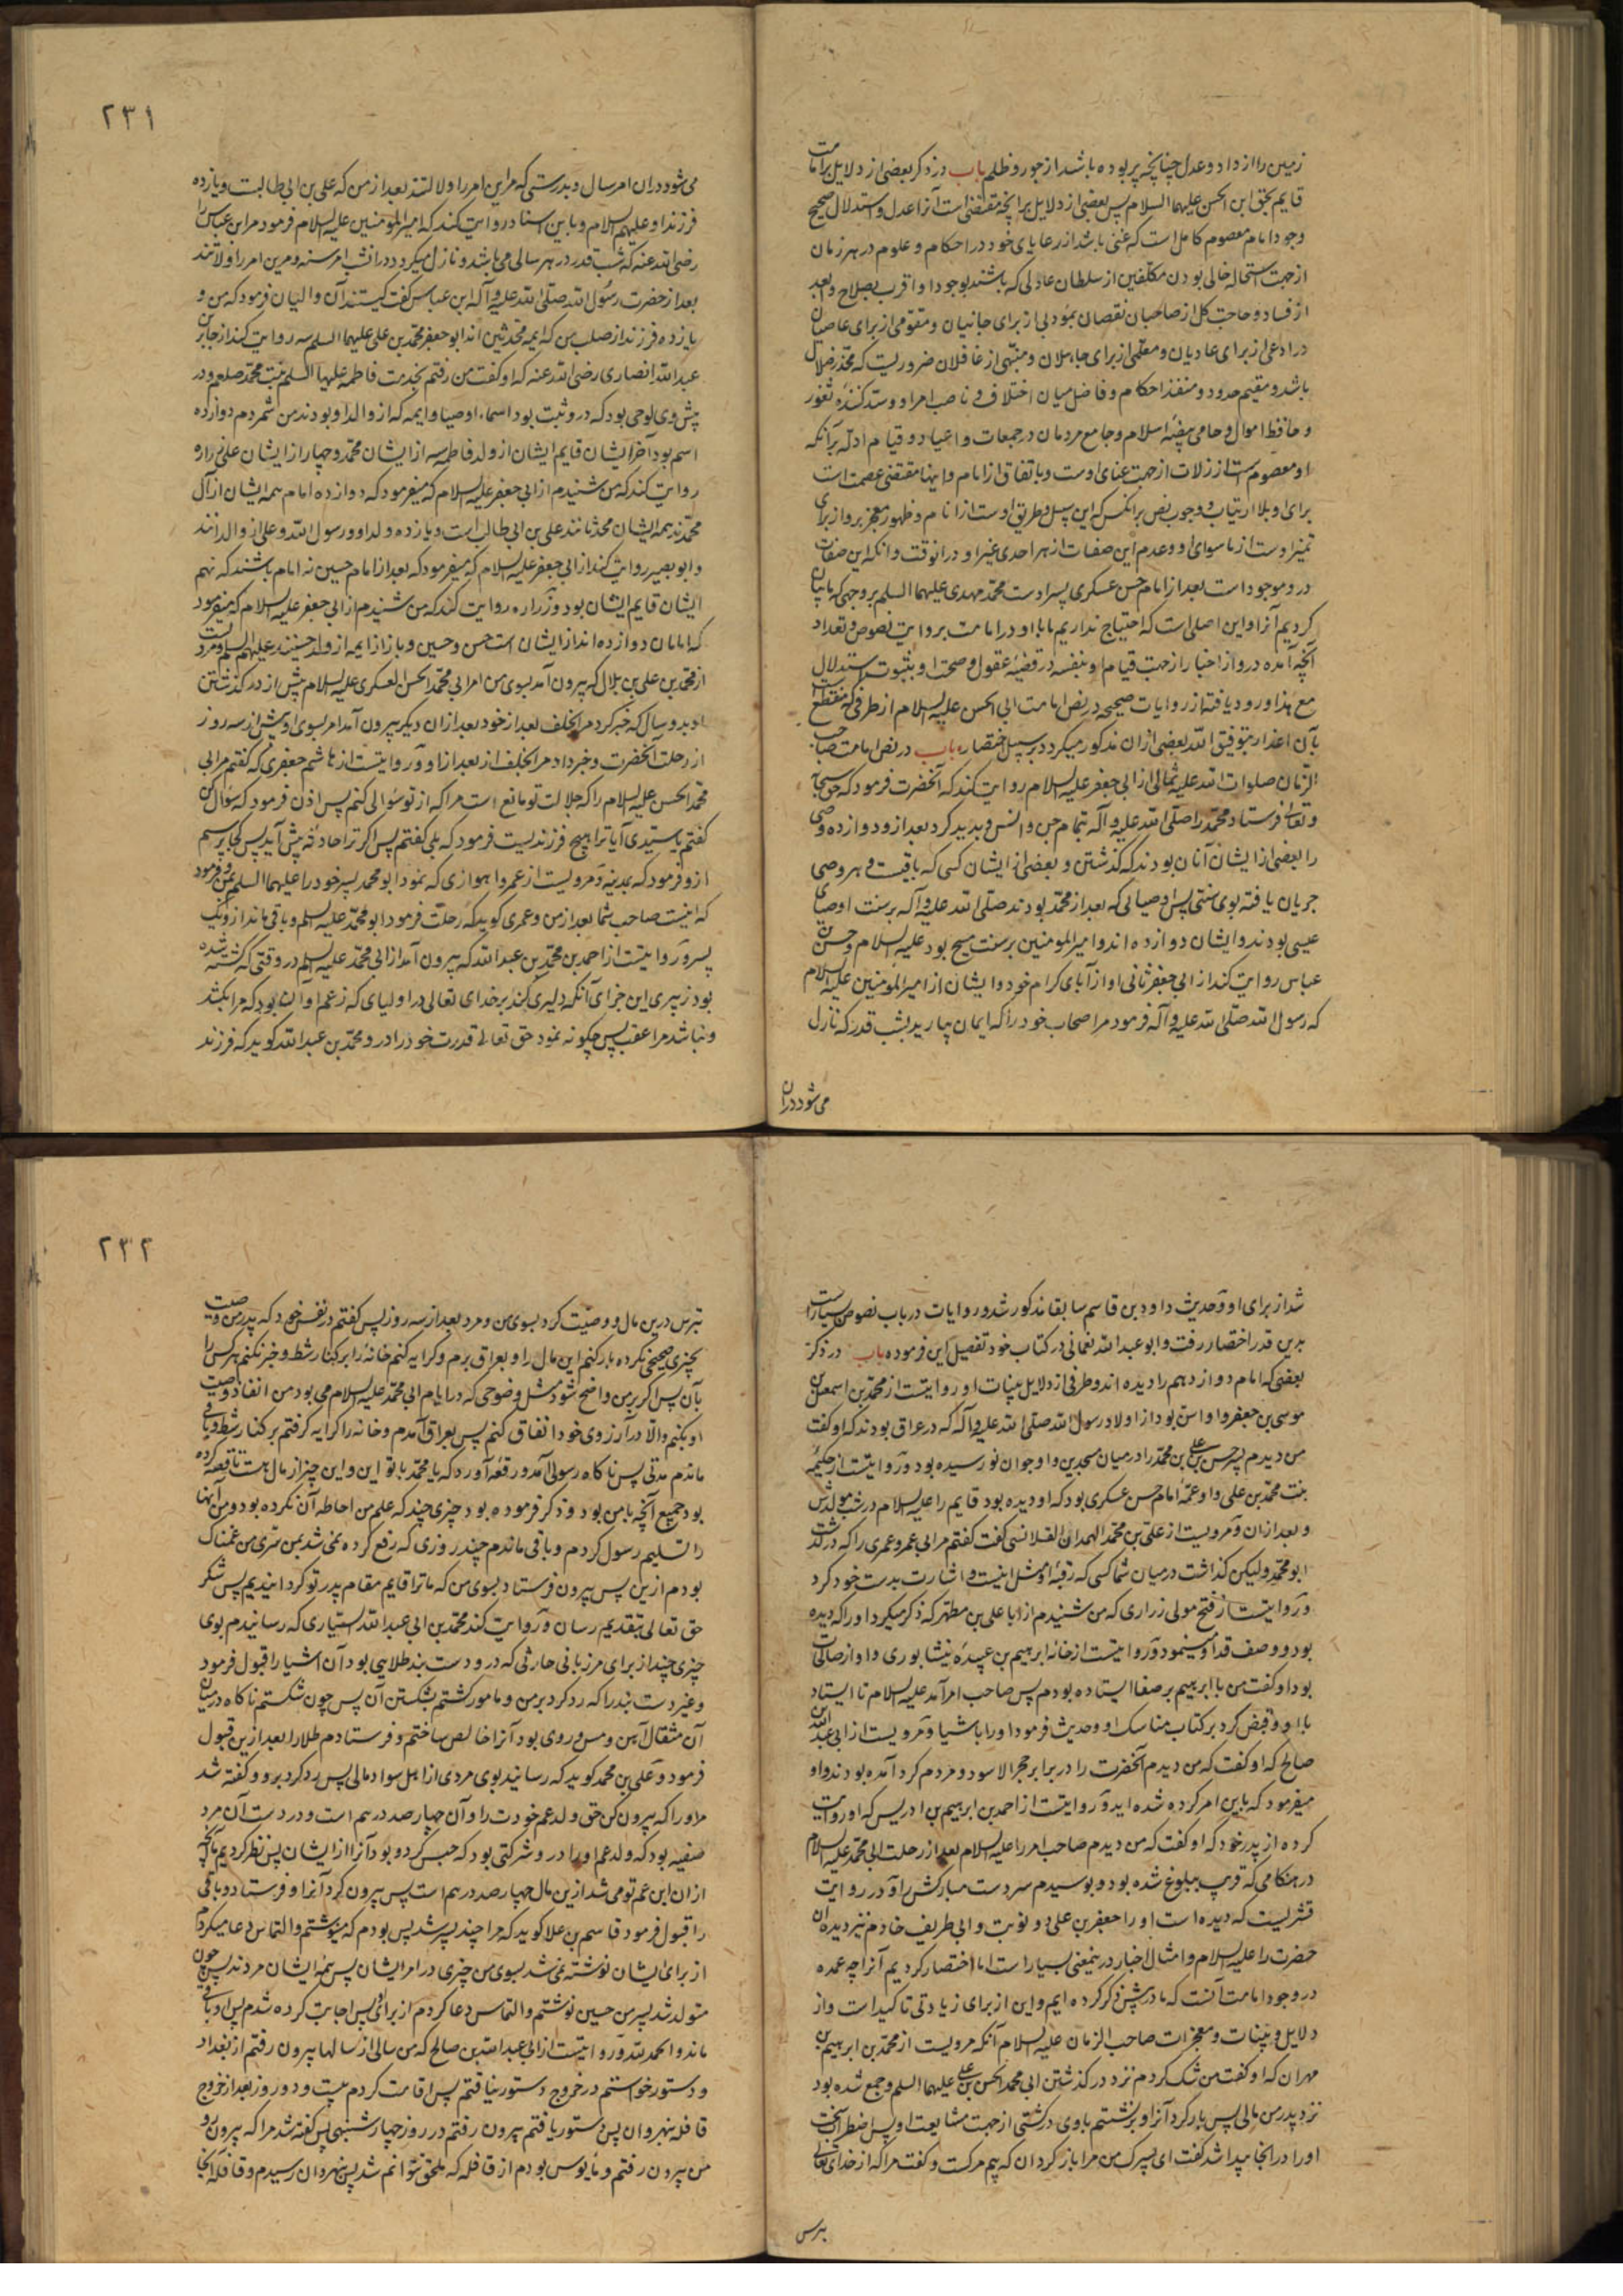 زمین را از داد و عدل چنانچه پر بوده باشد از جور و ظلم باب در ذکر بعضی از دلایل بر امامت
قایم بحق ابن الحسن علیهما السلام پس بعضی از دلایل برانچه مقتضی است آنرا عدل و استدلال صحیح
وجود امام معصوم کامل است که غنی باشد از رعایای خود در احکام و علوم در هر زمان
از جهت استحاله خالی بودن مکلفین از سلطان عادلی که باشند بوجود او اقرب بصلاح و ابعد
از فساد و حاجت کل از صاحبان نقصان بمؤدبی از برای جانیان و مقومی از برای عاصیان
درادعی از برای عادیان و معلمی از برای جاهلان و منبهی از غافلان ضروریست که محذر ضلال
باشد و مقیم حدود و منفذ احکام و فاصل میان اختلاف و ناصب امرا و سد کننده ثغور
و حافظ اموال و حامی بیضه اسلام و جامع مردمان در جمعات و اعیاد و قیام ادله برآنکه
او معصوم است از زلات از جهت غنای اوست و باتفاق از امام و اینها مقتضی عصمت است
برای او بلا ارتیاب و وجوب نص بر انکس که این سبیل و طریق اوست از انام و ظهور معجز برو از برای
تمیز اوست از ماسوای او و عدم این صفات از هر احدی غیر او در انوقت و انکه این صفات
درو موجود است بعد از امام حسن عسکری پسر اوست محمد مهدی علیهما السلم بر وجهی که ما بیان
کردیم آنرا و این اصلی است که احتیاج نداریم ما با او در امامت بروایت نصوص و تعداد
آنچه آمده درو از اخبار از جهت قیام او بنفسه در قضیه عقول و صحت او بثبوت استدلال
مع هذا ورود یافته از روایات صحیحه در نص امامت ابی الحسن علیه السلام از طرقی که منقطع است
بآن اعذار بتوفیق الله بعضی ازان مذکور میگردد بر سبیل اختصار باب در نص امامت صاحب
الزمان صلوات الله علیه ثمالی از ابی جعفر علیه السلام روایت کند که آنحضرت فرمود که حق سبحانه
و تعالی فرستاد محمد را صلی الله علیه و آله بتمام جن و انس و پدید کرد بعد از و دوازده وصی
را بعضی از ایشان آنان بودند که گذشتن و بعضی از ایشان کسی که باقیست و هر وصی
جریان یافته بوی سنتی پس اوصیائی که بعد از محمد بودند صلی الله علیه و آله بر سنت اوصیای
عیسی بودند و ایشان دوازده اند و امیر المومنین بر سنت مسیح بود علیه السلام و حسن بن
عباس روایت کند از ابی جعفر ثانی او از آبای کرام خود و ایشان از امیر المؤمنین علیه السلام
که رسول الله صلی الله علیه و آله فرمود مر اصحاب خود را که ایمان بیارید بشب قدر که نازل
می شود دران
۲۳۱
می شود دران امر سال و بدرستی که مر این امر را ولاتند بعد از من که علی بن ابی طالبست و یازده
فرزند او علیهم السلام و باین اسناد روایت کند که امیر المؤمنین علیه السلام فرمود مر ابن عباس را
رضی الله عنه که شب قدر در هر سالی می باشد و نازل میکردد در انشب امر سنه و مرین امر را ولاتند
بعد از حضرت رسول الله صلی الله علیه و آله ابن عباس کفت کیستند آن والیان فرمود که من و
یازده فرزند از صلب من که ایمه محدثین اند ابو جعفر محمد بن علی علیهما السلم روایت کند از جابر بن
عبد الله انصاری رضی الله عنه که او کفت من رفتم بخدمت فاطمه علیها السلم بنت محمد صلعم و در
پیش وی لوحی بود که درو ثبت بود اسماء اوصیا و ایمه که از ولد او بودند من شمردم دوازده
اسم بود آخر ایشان قایم ایشان از ولد فاطمه سه از ایشان محمد و چهار از ایشان علی زراره
روایت کند که من شنیدم از ابی جعفر علیه السلام که میفرمود که دوازده امام همه ایشان از آل
محمدند همه ایشان محدثانند علی بن ابی طالب است و یازده ولد او و رسول الله و علی از والدانند
و ابو بصیر روایت کند از ابی جعفر علیه السلام که میفرمود که بعد از امام حسین نه امام باشند که نهم
ایشان قایم ایشان بود و زراره روایت کند که من شنیدم از ابی جعفر علیه السلام که میفرمود
که امامان دوازده اند از ایشان است حسن و حسین و باز از ایمه از ولد حسینند علیهم السلم و مرویست
از محمد بن علی بن بلال که بیرون آمد بسوی من امر ابی محمد الحسن العسکری علیه السلام پیش از درگذشتن
او بدو سال که خبر کرد مر الخلف بعد از خود بعد ازان دیکر بیرون آمد امر بسوی او پیش از سه روز
از رحلت آنحضرت و خبر داد مر الخلف از بعد از او و روایتست از هاشم جعفری که کفتم مر ابی
محمد الحسن علیه السلام را که جلالت تو مانع است مرا که از تو سوالی کنم پس اذن فرمود که سوال کن
کفتم یا سیدی آیا ترا هیچ فرزند یست فرمود که بلی کفتم پس اکر ترا حادثه پیش آید پس کجا پرسم
ازو فرمود که بمدینه و مرویست از عمرو اهوازی که نمود ابو محمد پسر خود را علیهما السلم بمن و فرمود
که اینست صاحب شما بعد از من و عمری کوید که رحلت فرمود ابو محمد علیه السلم و باقی ماند ازو یک
پسر و روایتست از احمد بن محمد بن عبد الله که بیرون آمد از ابی محمد علیه السلم در وقتی که کشته شده
بود زبیری این جزای آنکه دلیری کند بر خدای تعالی در اولیای که زعم او آن بود که مرا بکشد
و نباشد مرا عقب پس چکونه نمود حق تعالی قدرت خود را درو محمد بن عبد الله کوید که فرزند
شد از برای او و حدیث داود بن قاسم سابقا مذکور شد و روایات در باب نصوص بسیار است
برین قدر اختصار رفت و ابو عبد الله نعمانی در کتاب خود تفصیل این فرموده باب در ذکر
بعضی که امام دوازدهم را دیده اند و طرفی از دلایل و بینات او روایتست از محمد بن اسمعیل بن
موسی بن جعفر و او اسن بود از اولاد رسول الله صلی الله علیه و آله که در عراق بودند که او کفت
من دیدم پسر حسن بن علی بن محمد را در میان مسجدین و او جوان نورسیده بود و روایتست از حکیمه
بنت محمد بن علی و او عمه امام حسن عسکری بود که او دیده بود قایم را علیه السلام در شب مولدش
و بعد ازان و مرویست از علی بن محمد الهمدان القلانسی کفت کفتم مر ابی عمرو عمری را که درگذشت
ابو محمد ولیکن گذاشت در میان شما کسی که رقبه او مثل اینست و اشارت بدست خود کرد
و روایتست از فتح مولی زراری که من شنیدم از ابا علی بن مطهر که ذکر میکرد او را که دیده
بود و وصف قد او مینمود و روایتست از خانه ابرهیم بن عبیده نیشابوری و او از صالحات
بود او کفت من با ابرهیم بر صفا ایستاده بودم پس صاحب امر آمد علیه السلام تا ایستاد
با او و قبض کرد بر کتاب مناسک او و حدیث فرمود او را باشیا و مرویست از ابی عبد الله بن
صالح که او کفت که من دیدم آنحضرت را در برابر حجر الاسود و مردم کرد آمده بودند و او
میفرمود که باین امر کرده شده اید و روایتست از احمد بن ابرهیم بن ادریس که او روایت
کرده از پدر خود که او کفت که من دیدم صاحب امر را علیه السلام بعد از رحلت ابی محمد علیه السلام
در هنکامی که قریب ببلوغ شده بود و بوسیدم سر و دست مبارکش را و در روایت
قنبریست که دیده است او را جعفر بن علی دو نوبت و ابی طریف خادم نیز دیده ان
حضرت را علیه السلام و امثال اخبار درینمعنی بسیار است اما اختصار کردیم آنرا چه عمده
در وجود امامت آنست که ما در پیش ذکر کرده ایم و این از برای زیادتی تاکید است و از
دلایل و بینات و معجزات صاحب الزمان علیه السلام آنکه مرویست از محمد بن ابرهیم بن
مهران که او کفت من شک کردم نزد درگذشتن ابی محمد الحسن بن علی علیهما السلم و جمع شده بود
نزد پدر من مالی پس بار کرد آنرا و بر نشستم با وی در کشتی از جهت مشایعت او پس اضطراب سخت
او را در انجا پیدا شد کفت ای پسرک من مرا باز کردان که بیم مرکست و کفت مرا که از خدای تعالی
بترس
۲۳۲
بترس درین مال و وصیت کرد بسوی من و مرد بعد از سه روز پس کفتم در نفس خود که پدر من وصیت
بچیزی صحیحی نکرده بار کنم این مال را و بعراق برم و کرایه کنم خانه را بر کنار شط و خبر نکنم هرکس را
بآن پس اکر بر من واضح شود مثل وضوحی که در ایام ابی محمد علیه السلام می بود من انفاذ وصیت
او بکنم و الا در آرزوی خود انفاق کنم پس بعراق آمدم و خانه را کرایه کرفتم بر کنار شط و باقی
ماندم مدتی پس ناکاه رسولی آمد و رقعه آورد که یا محمد با تو این و این چیز از مال هست تا قصه کرده
بود جمیع آنچه با من بود و ذکر فرموده بود چیزی چند که علم من احاطه آن نکرده بود و من آنها
را تسلیم رسول کردم و باقی ماندم چند روزی که رفع کرده نمی شد بمن سری من غمناک
بودم ازین پس بیرون فرستاد بسوی من که ما ترا قایم مقام پدر تو کردانیدیم پس شکر
حق تعالی بتقدیم رسان و روایت کند محمد بن ابی عبد الله سیاری که رسانیدم بوی
چیزی چند از برای مرزبانی حارثی که درو دست بند طلایی بود آن اشیا را قبول فرمود
و غیر دست بند را که رد کرد بر من و مامور کشتم بشکستن آن پس چون شکستم ناکاه در میان
آن مثقال آهن و مس و روی بود آنرا خالص ساختم و فرستادم طلا را بعد ازین قبول
فرمود و علی بن محمد کوید که رسانید بوی مردی از اهل سواد مالی پس رد کرد برو و کفته شد
مر او را که بیرون کن حق ولد عم خودت را و آن چهار صد درهم است و در دست آن مرد
ضیعه بود که ولد عم او را درو شرکتی بود که حبس کرده بود آنرا از ایشان پس نظر کردیم آنچه
ازان ابن عم تو می شد ازین مال چهار صد درهم است پس بیرون کرد آنرا و فرستاد و باقی
را قبول فرمود قاسم بن علا کوید که مرا چند پسر شد پس بودم که مینوشتم و التماس دعا میکردم
از برای ایشان نوشته نمی شد بسوی من چیزی در امر ایشان پس همه ایشان مردند پس چون
متولد شد پسر من حسین نوشتم و التماس دعا کردم از برای او پس اجابت کرده شدم پس او باقی
ماند و الحمد لله و روایتست از ابی عبد الله بن صالح که من سالی از سالها بیرون رفتم از بغداد
و دستور خواستم در خروج دستور نیافتم پس اقامت کردم بیست و دو روز بعد از خروج
قافله بنهروان پس دستور یافتم بیرون رفتم در روز چهارشنبهی پس کفته شد مرا که بیرون رو
من بیرون رفتم و مأیوس بودم از قافله که ملحق توانم شد پس بنهروان رسیدم و قافله آنجا